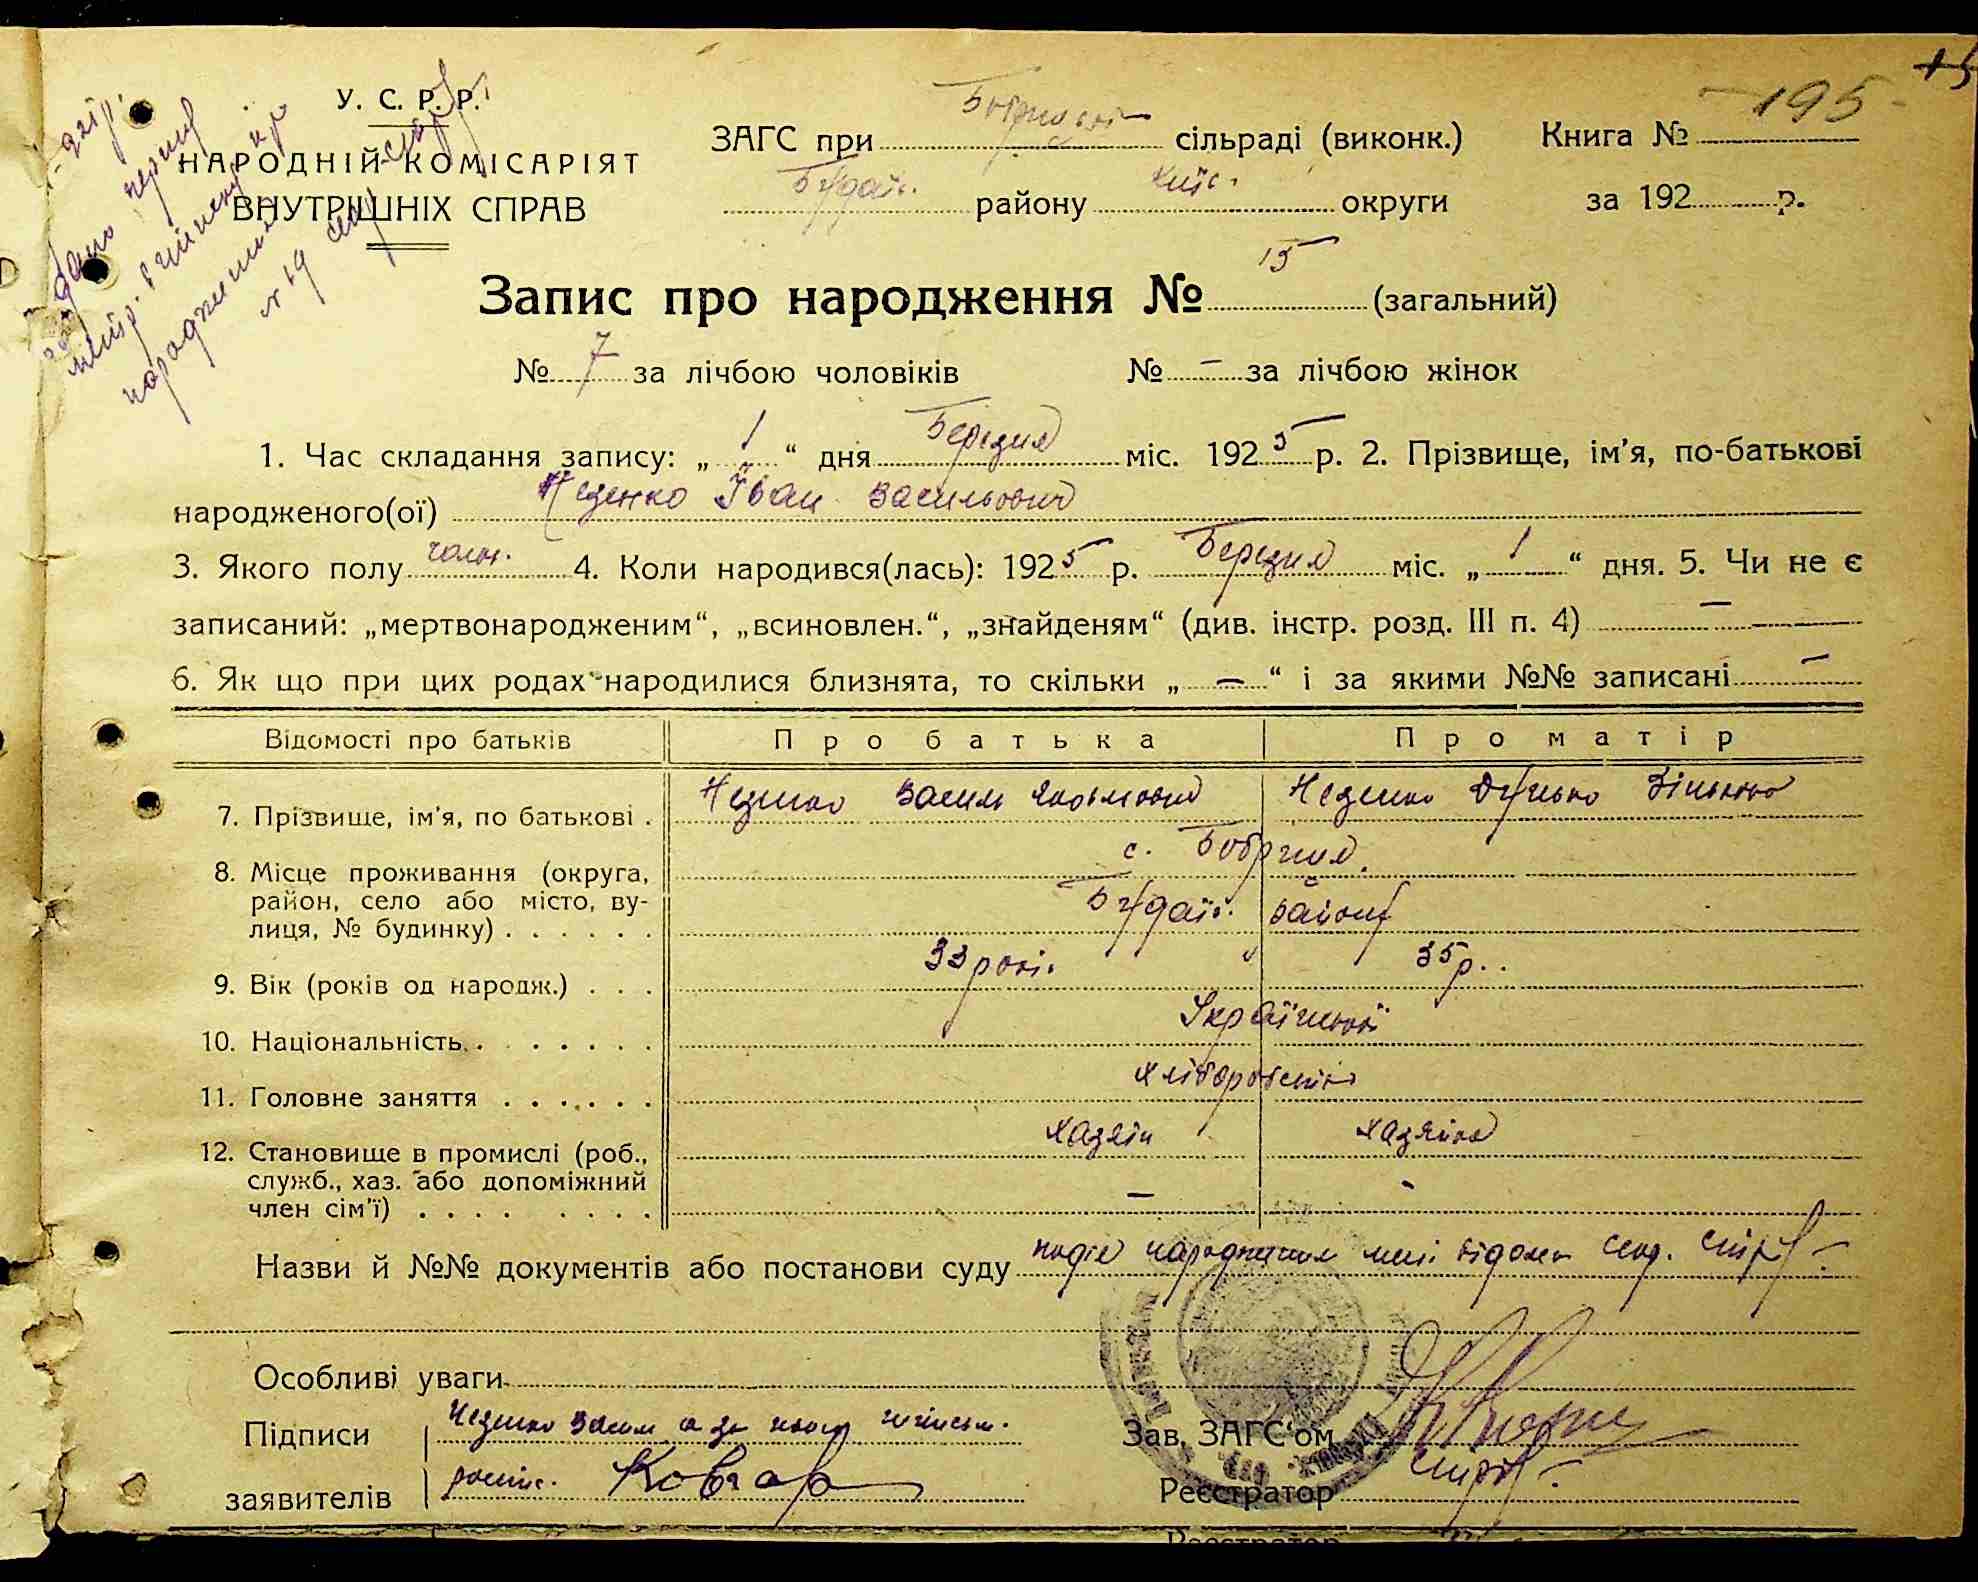 У. С. Р. Р.
НАРОДНІЙ КОМІСАРІЯТ
ВНУТРІШНІХ СПРАВ
ЗАГС при сільраді (виконк.) Книга № 195
Будаїв. району Київ. округи за 192 р.
Запис про народження № 15 (загальний)
№ 7 за лічбою чоловіків № – за лічбою жінок
1. Час складання запису: „ 1 “ дня Березня міс. 1925 р. 2. Прізвище, ім'я, по-батькові
народженого(ої) Незенко Іван Васильович
3. Якого полу чолов. 4. Коли народився(лась): 1925 р. Березня міс. „ 1 “ дня. 5. Чи не є
записаний: „мертвонародженим“, „всиновлен.“, „знайденям“ (див. інстр. розд. III п. 4) –
6. Як що при цих родах народилися близнята, то скільки „ – “ і за якими №№ записані –
Відомості про батьків Про батька Про матір
7. Прізвище, ім'я, по батькові . Незенко Василь Якольович Незенко
8. Місце проживання (округа, с. Бобриця
район, село або місто, ву- Будаїв. району
лиця, № будинку) . . . . . .
9. Вік (років од народж.) . . . 33 років 35 р.
10. Національність . . . . . . . Української
11. Головне заняття . . . . . . Хліборобство
12. Становище в промислі (роб., хазяїн хазяйка
служб., хаз. або допоміжний –
член сім'ї) . . . . . . . .
Назви й №№ документів або постанови суду подія народження мені відома секр.
Особливі уваги
Підписи Незенко Василь а за нього
заявителів розпис. Ковгар
Зав. ЗАГС'ом
Реєстратор